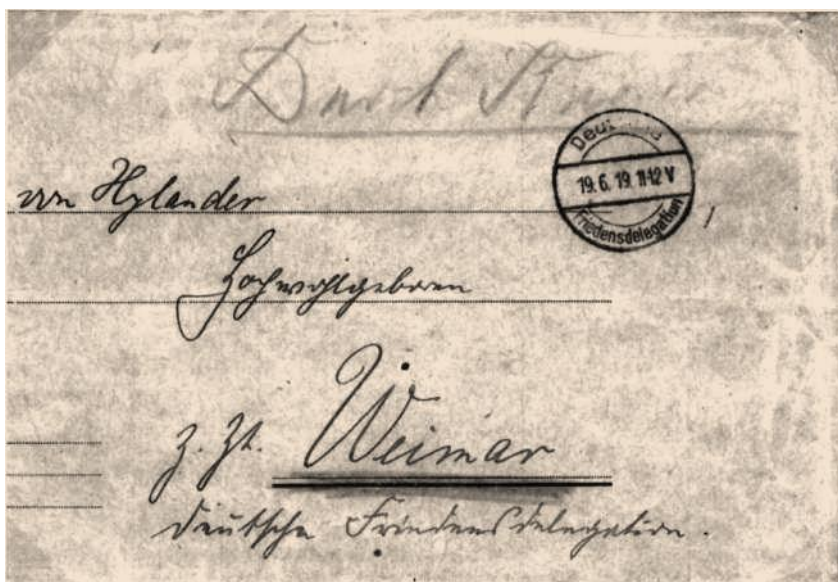 Durch
von Hylander
Deutsche
19.6.19. 11-12 V
Friedensdelegation
Hochwohlgeboren
z. Zt. Weimar
Deutsche Friedensdelegation.